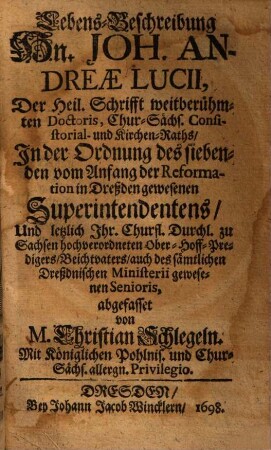 Lebens-Beschreibung
Hn. JOH. AN-
DREÆ LUCII,
Der Heil. Schrifft weitberühm-
ten Doctoris, Chur-Sächs. Consi-
storial- und Kirchen-Raths/
In der Ordnung des sieben-
den vom Anfang der Reforma-
tion in Dreßden gewesenen
Superintendentens/
Und letzlich Ihr. Churfl. Durchl. zu
Sachsen hochverordneten Ober-Hoff-Pre-
digers/Beichtvaters/auch des sämtlichen
Dreßdnischen Ministerii gewese-
nen Senioris,
abgefasset
von
M. Christian Schlegeln.
Mit Königlichen Pohlnis. und Chur-
Sächs. allergn. Privilegio.
DRESDEN/
Bey Johann Jacob Wincklern/ 1698.